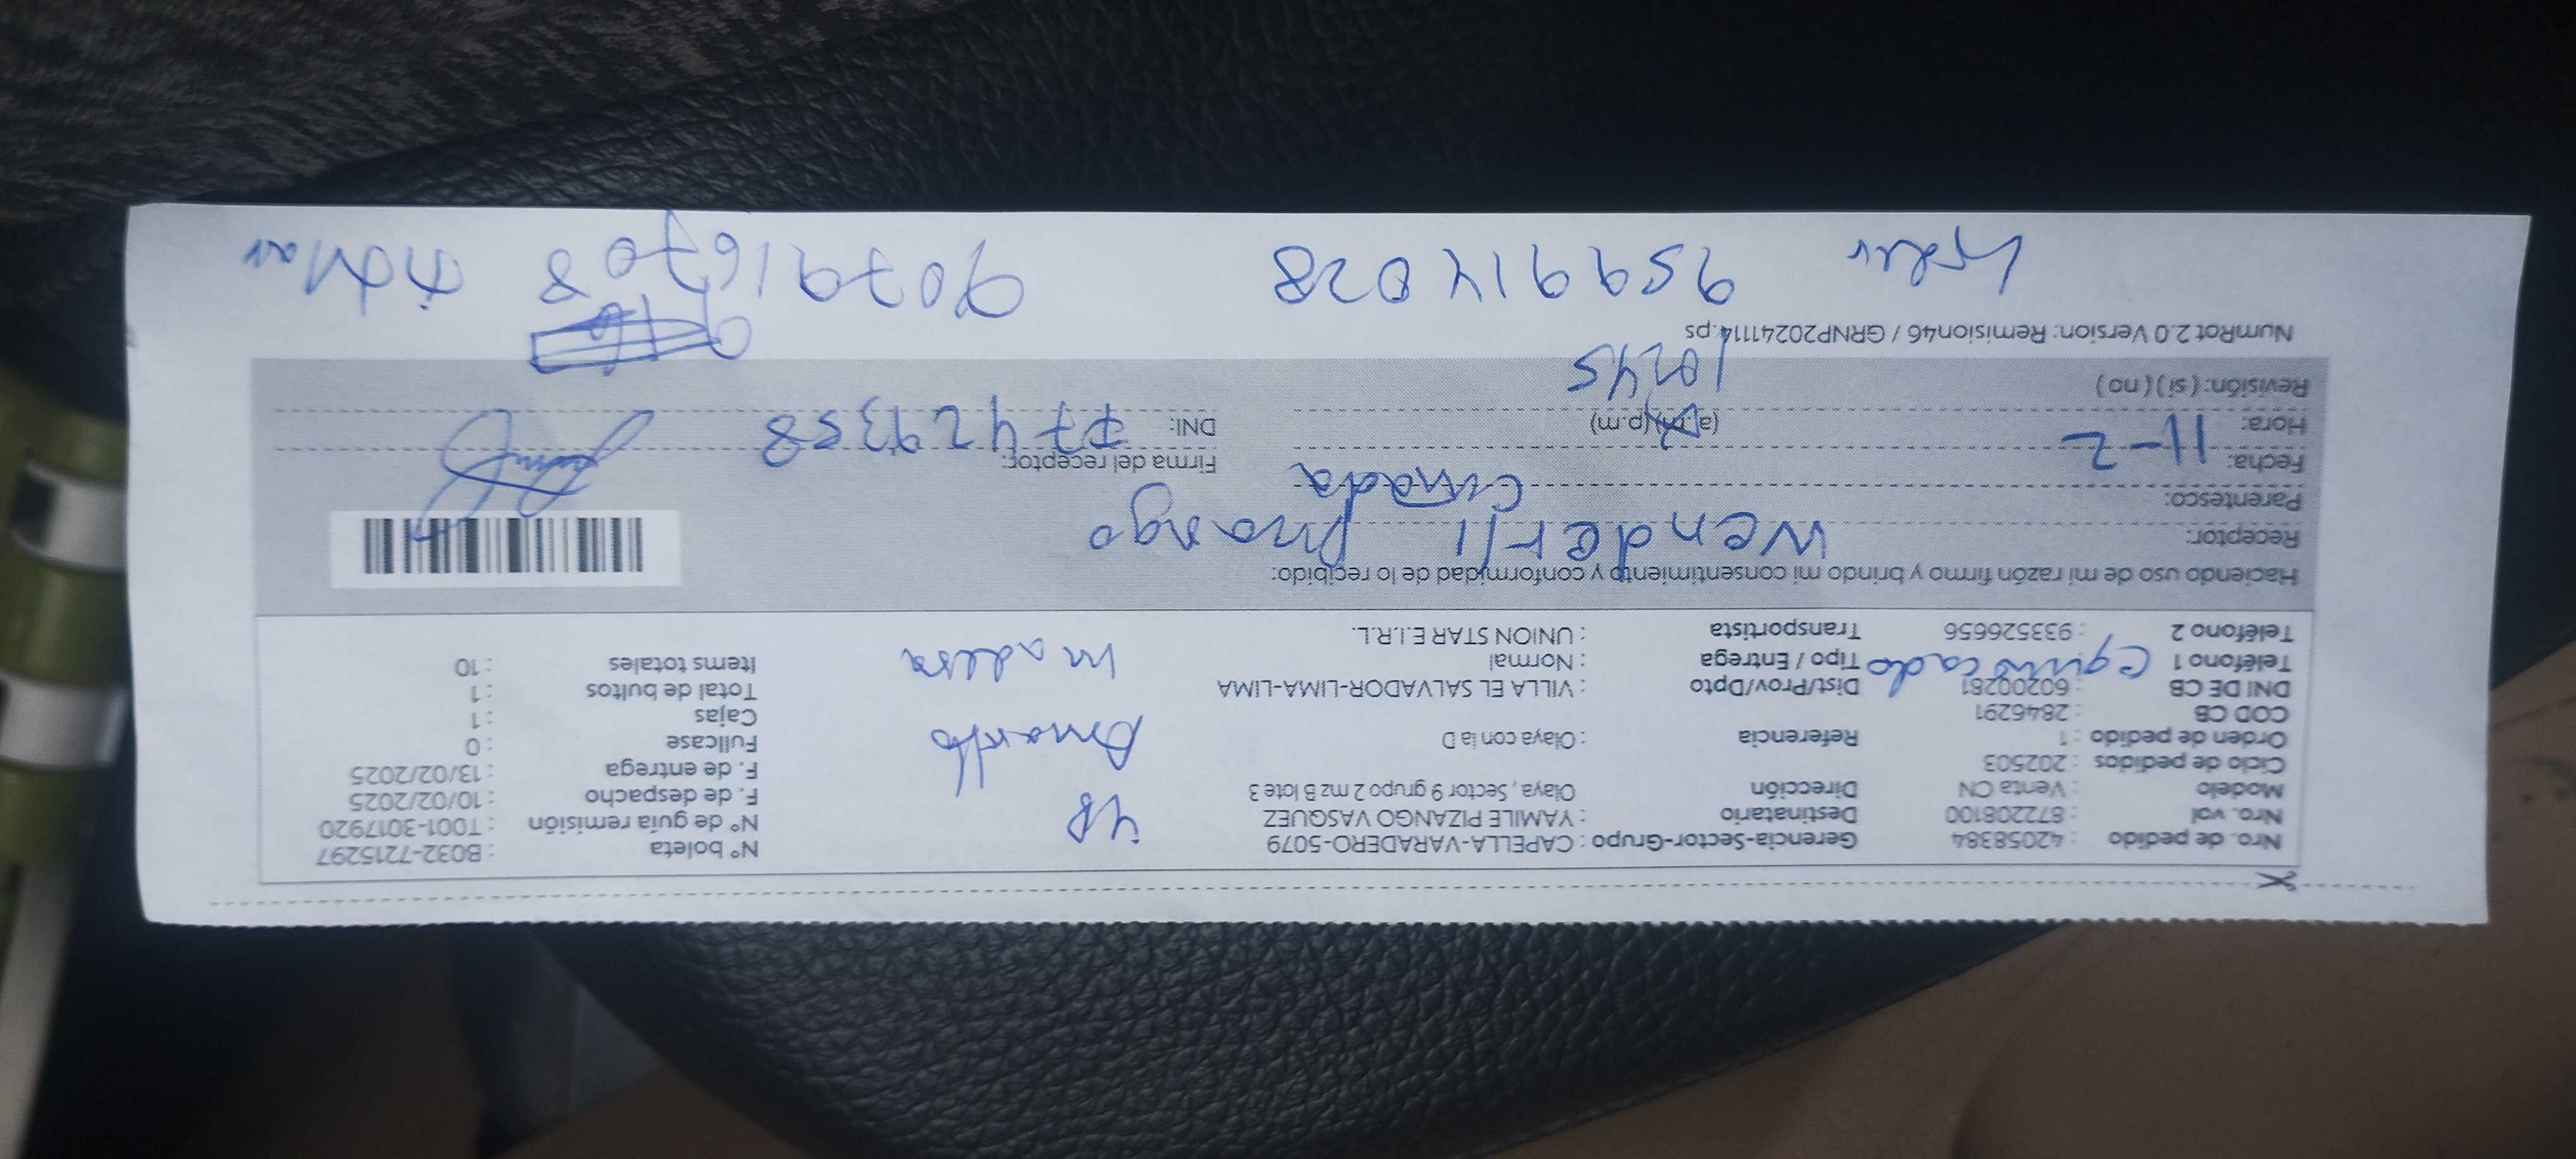 Nro. de pedido : 42058384 Gerencia-Sector-Grupo : CAPELLA-VARADERO-5079 Nº boleta : B032-7215297
Nro. vol : 872208100 Destinatario : YAMILE PIZANGO VASQUEZ Nº de guía remisión : T001-3017920
Modelo : Venta CN Dirección Olaya, Sector 9 grupo 2 mz B lote 3 F. de despacho : 10/02/2025
Ciclo de pedidos : 202503 F. de entrega : 13/02/2025
Orden de pedido : 1 Referencia : Olaya con la D Fullcase : 0
COD CB : 2846291 Cajas : 1
DNI DE CB : 60200281 Dist/Prov/Dpto : VILLA EL SALVADOR-LIMA-LIMA Total de bultos : 1
Teléfono 1 Equivocado Tipo / Entrega : Normal Items totales : 10
Teléfono 2 : 933526656 Transportista : UNION STAR E.I.R.L.
madera
Haciendo uso de mi razón firmo y brindo mi consentimiento y conformidad de lo recibido:
Receptor: Wenderli
Parentesco: Cuñada
Fecha: 11-2 Firma del receptor:
Hora: (a.m)(p.m) DNI: 77429358
Revisión: ( si ) ( no ) 10:45
NumRot 2.0 Version: Remision46 / GRNP20241114.ps
959914028 907916708